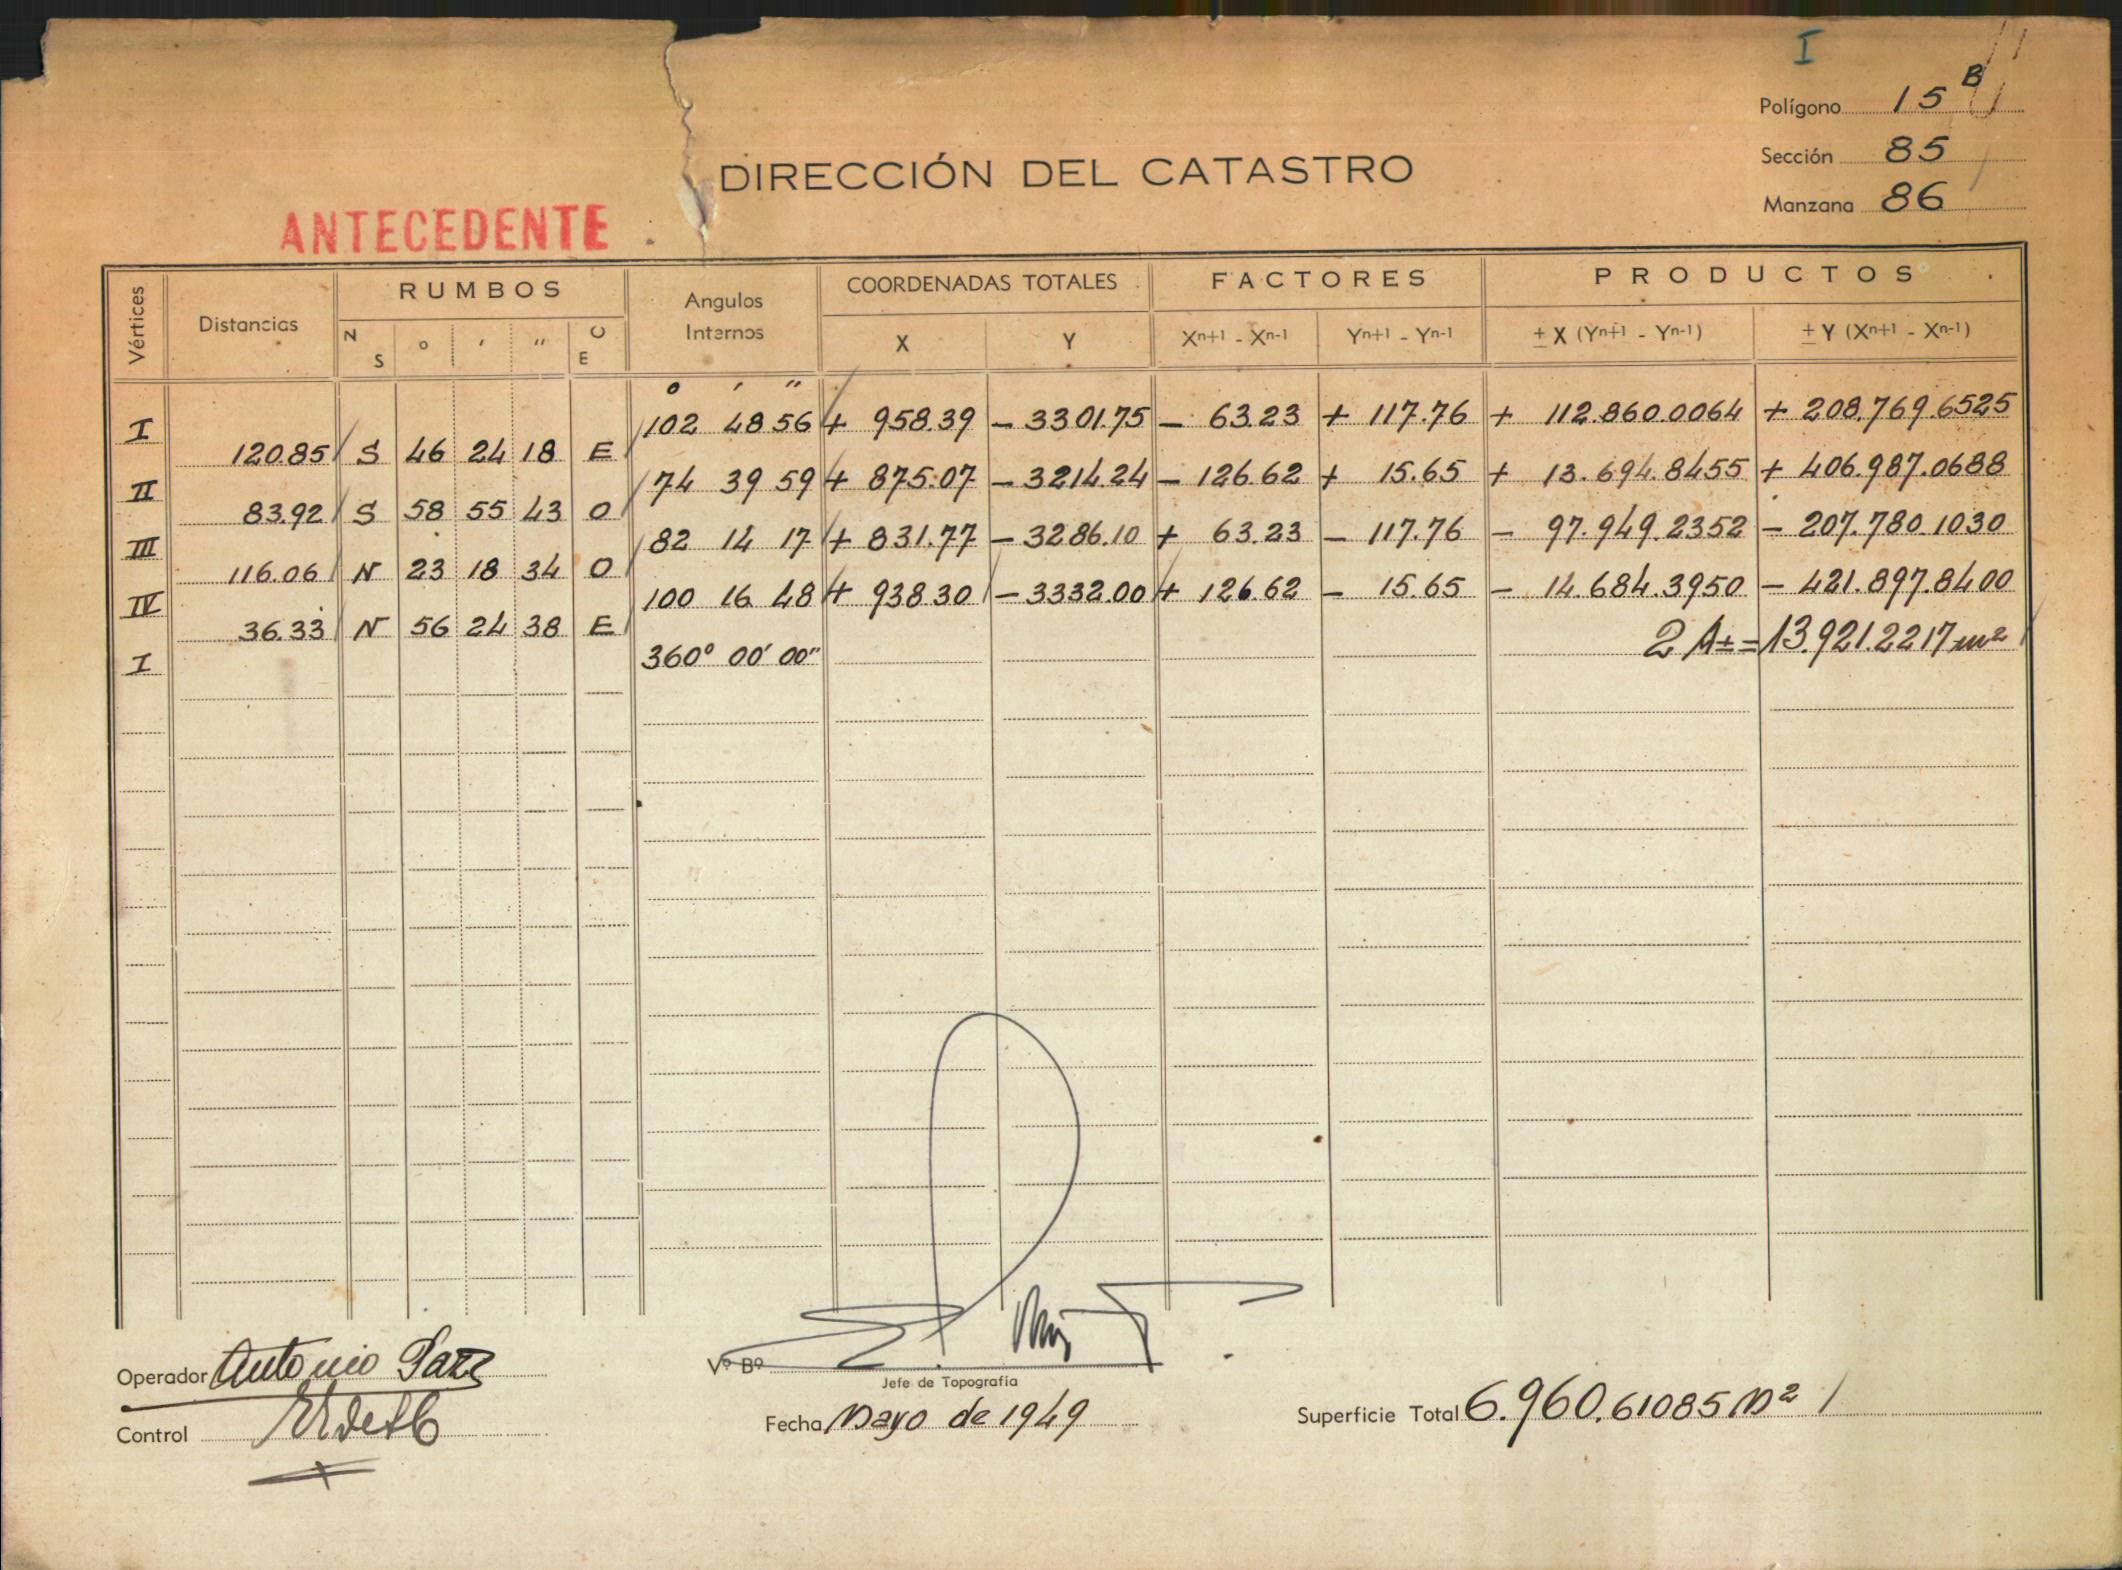 I
Polígono 15 B
Sección 85
DIRECCIÓN DEL CATASTRO
Manzana 86
ANTECEDENTE
Vértices Distancias RUMBOS Angulos Internos COORDENADAS TOTALES FACTORES PRODUCTOS
N S ° ' " O E X Y Xn+1 - Xn-1 Yn+1 - Yn-1 ± X (Yn+1 - Yn-1) ± Y (Xn+1 - Xn-1)
° ' "
I 102 48 56 + 958.39 - 3301.75 - 63.23 + 117.76 + 112.860.0064 + 208.769.6525
120.85 S 46 24 18 E
II 74 39 59 + 875.07 - 3214.24 - 126.62 + 15.65 + 13.694.8455 + 406.987.0688
83.92 S 58 55 43 O
III 82 14 17 + 831.77 - 3286.10 + 63.23 - 117.76 - 97.949.2352 - 207.780.1030
116.06 N 23 18 34 O
IV 100 16 48 + 938.30 - 3332.00 + 126.62 - 15.65 - 14.684.3950 - 421.897.8400
36.33 N 56 24 38 E
I 360° 00' 00" 2 A ± = 13.921.2217 m²
Operador Antonio Paz
Vº Bº
Jefe de Topografía
Control
Fecha Mayo de 1949
Superficie Total 6.960.61085 M²